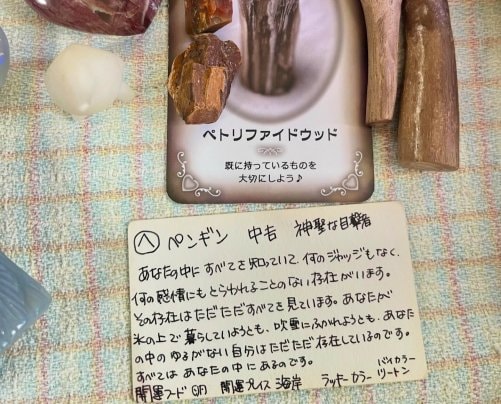 ペトリファイドウッド
既に持っているものを
大切にしよう♪
へ ペンギン 中吉 神聖な目撃者
あなたの中にすべてを知っていて、何のジャッジもなく、
何の感情にもとらわれることのない存在がいます。
その存在はただただすべてを見ています。あなたが
氷の上で暮らしていようとも、吹雪にふかれようとも、あなた
の中のゆるがない自分はただただ存在しているのです。
すべてはあなたの中にあるのです。
開運フード 卵 開運プレイス 海岸 ラッキーカラー バイカラー
ツートン